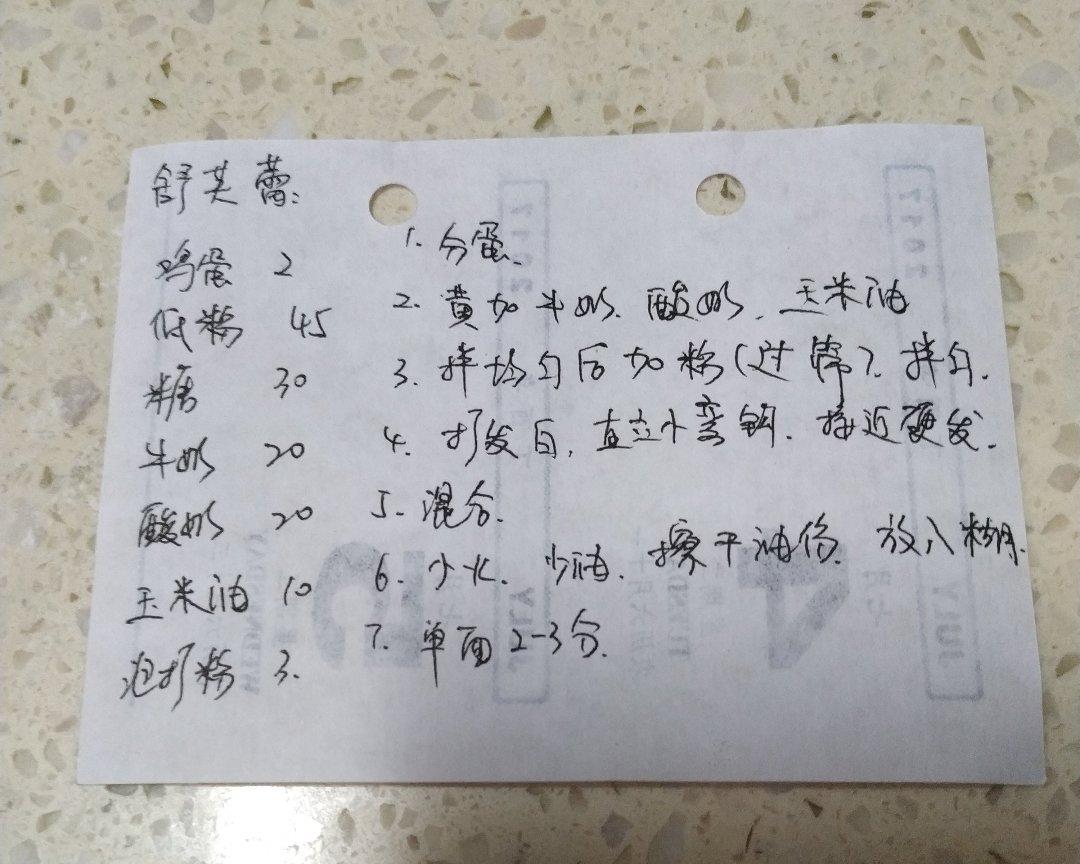 舒芙蕾:
鸡蛋 2
低粉 45
糖 30
牛奶 20
酸奶 20
玉米油 10
泡打粉 3.
1. 分蛋.
2. 黄加牛奶. 酸奶. 玉米油
3. 拌均匀后加粉(过筛). 拌匀.
4. 打发白, 直立小弯钩. 接近硬发.
5. 混合.
6. 少火. 少油. 擦干油份. 放入糊.
7. 单面 2-3分.
2017
2017
JULY
JULY